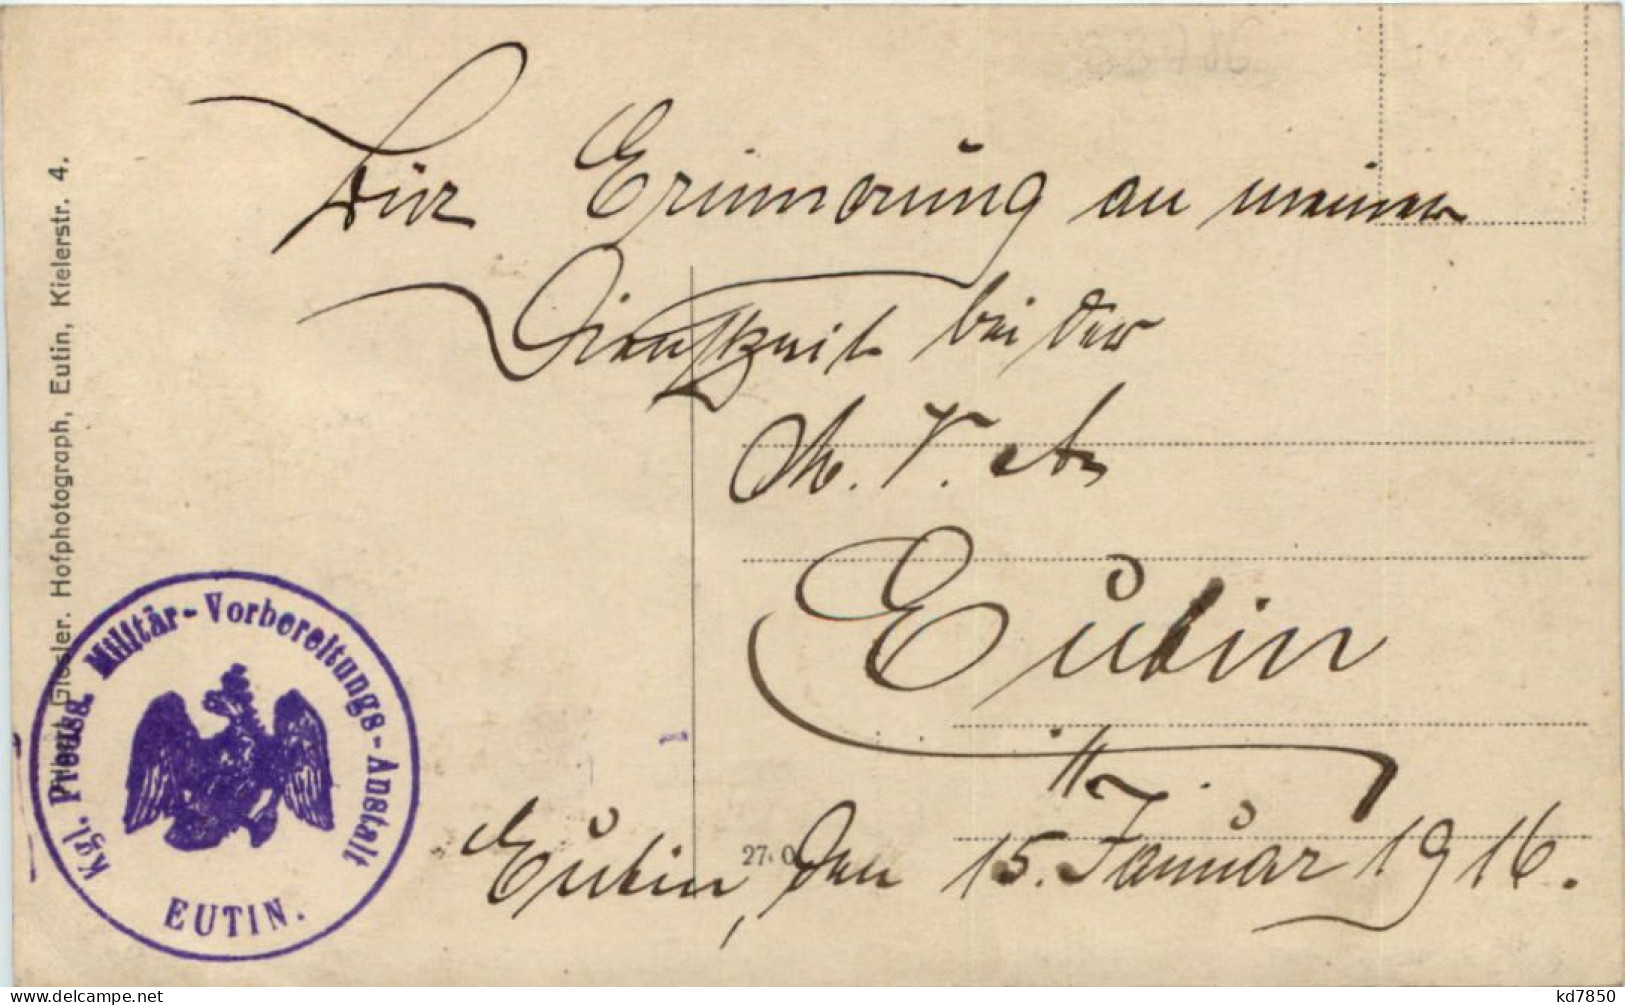 Zur Erinnerung an meine
Dienstzeit bei der
M. V. A.
Eutin
Eutin, den 15. Januar 1916.
27. 0
Hofphotograph, Eutin, Kielerstr. 4.
Kgl. Preuss. Militär-Vorbereitungs-Anstalt
EUTIN.
kd7850